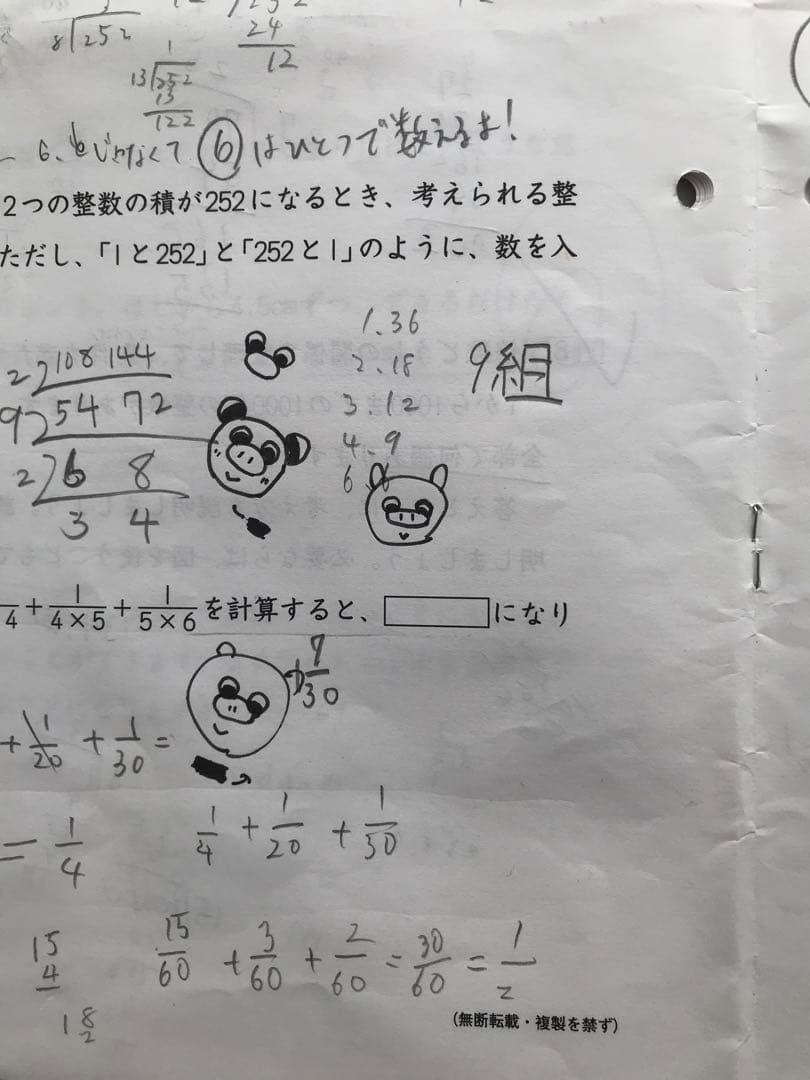 8 252
24
12
1
13 252
13
122
6、6じゃなくて 6 はひとつで数えるよ!
2つの整数の積が252になるとき、考えられる整
ただし、「1と252」と「252と1」のように、数を入
2 108 144
9 54 72
2 6 8
3 4
1.36
2.18
3.12
4.9
6
9組
4 + 1/4×5 + 1/5×6 を計算すると、 になり
+ 1/20 + 1/30 =
30
= 1/4
1/4 + 1/20 + 1/30
15/60 + 3/60 + 2/60 = 30/60 = 1/2
15
4
1 8/2
(無断転載・複製を禁ず)